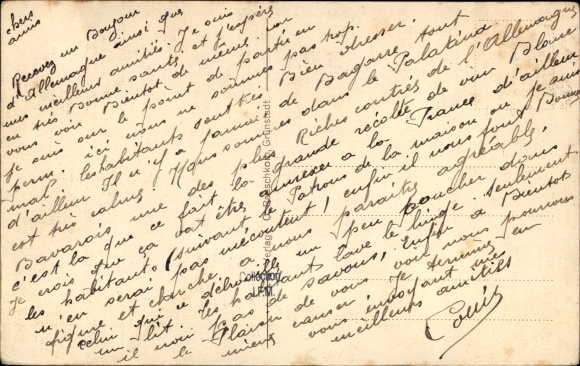 chers
amis
Recevez un Bonjour
d'Allemagne ainsi que
mes meilleurs amitiés. Je suis
en très Bonne santé et j'espère
vous voir Bientot de même. car
je suis sur le point de partir en
perm. ici nous ne sommes pas trop
mal. les habitants sont très Bien dresser.
d'ailleur Il n'y a jamais de Bagarre tout
est très calme Nous sommes dans le Palatina
Bavarois une des plus Riches contrés de l'Allemagne
c'est la que ce fait la grande récolte de vin Blanc
Je crois que ça vat être annexer a la France d'ailleur
les habitants (suivant le Patron de la maison ou je suis
n'en serai pas mécontent) enfin il vous font Bonne
figure et cherche a nous paraitre agréable.
celui qui ce débrouille un peu coucher dans
un lit les habitants lave le linge seulement
il noir Pas de savons, Enfin a Bientot
le Plaisir de vous voir nous pourrons
mieux causer. Je termine en
vous envoyant mes
meilleurs amitiés
Louis
Verlag Peschko Grünstadt
Collection
I.F.M.